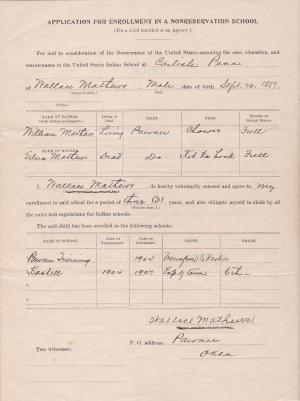 APPLICATION FOR ENROLLMENT IN A NONRESERVATION SCHOOL
(For a child enrolled at an Agency.)
For and in consideration of the Government of the United States assuming the care, education, and
maintenance in the United States Indian School at Carlisle Penna
of Wallace Mathews, Male, date of birth Sept. 1889,
NAME OF FATHER. Living or Dead? TRIBE. BAND.
William Mathews Living Pawnee Full
NAME OF MOTHER.
Edna Mathews Dead Do Full
I, Wallace Mathews, do hereby voluntarily consent and agree to my
enrollment in said school for a period of three (3) years, and also obligate myself to abide by all
the rules and regulations for Indian schools.
The said child has been enrolled in the following schools:
NAME OF SCHOOL. DATE OF ENTRANCE. DATE OF DISCHARGE. CAUSE. GRADE.
Pawnee Training 1904 Transferred to Haskell
Haskell 1904 1907 Exp of term 6th
Wallace Mathews
Two witnesses: P. O. address: Pawnee
Okla